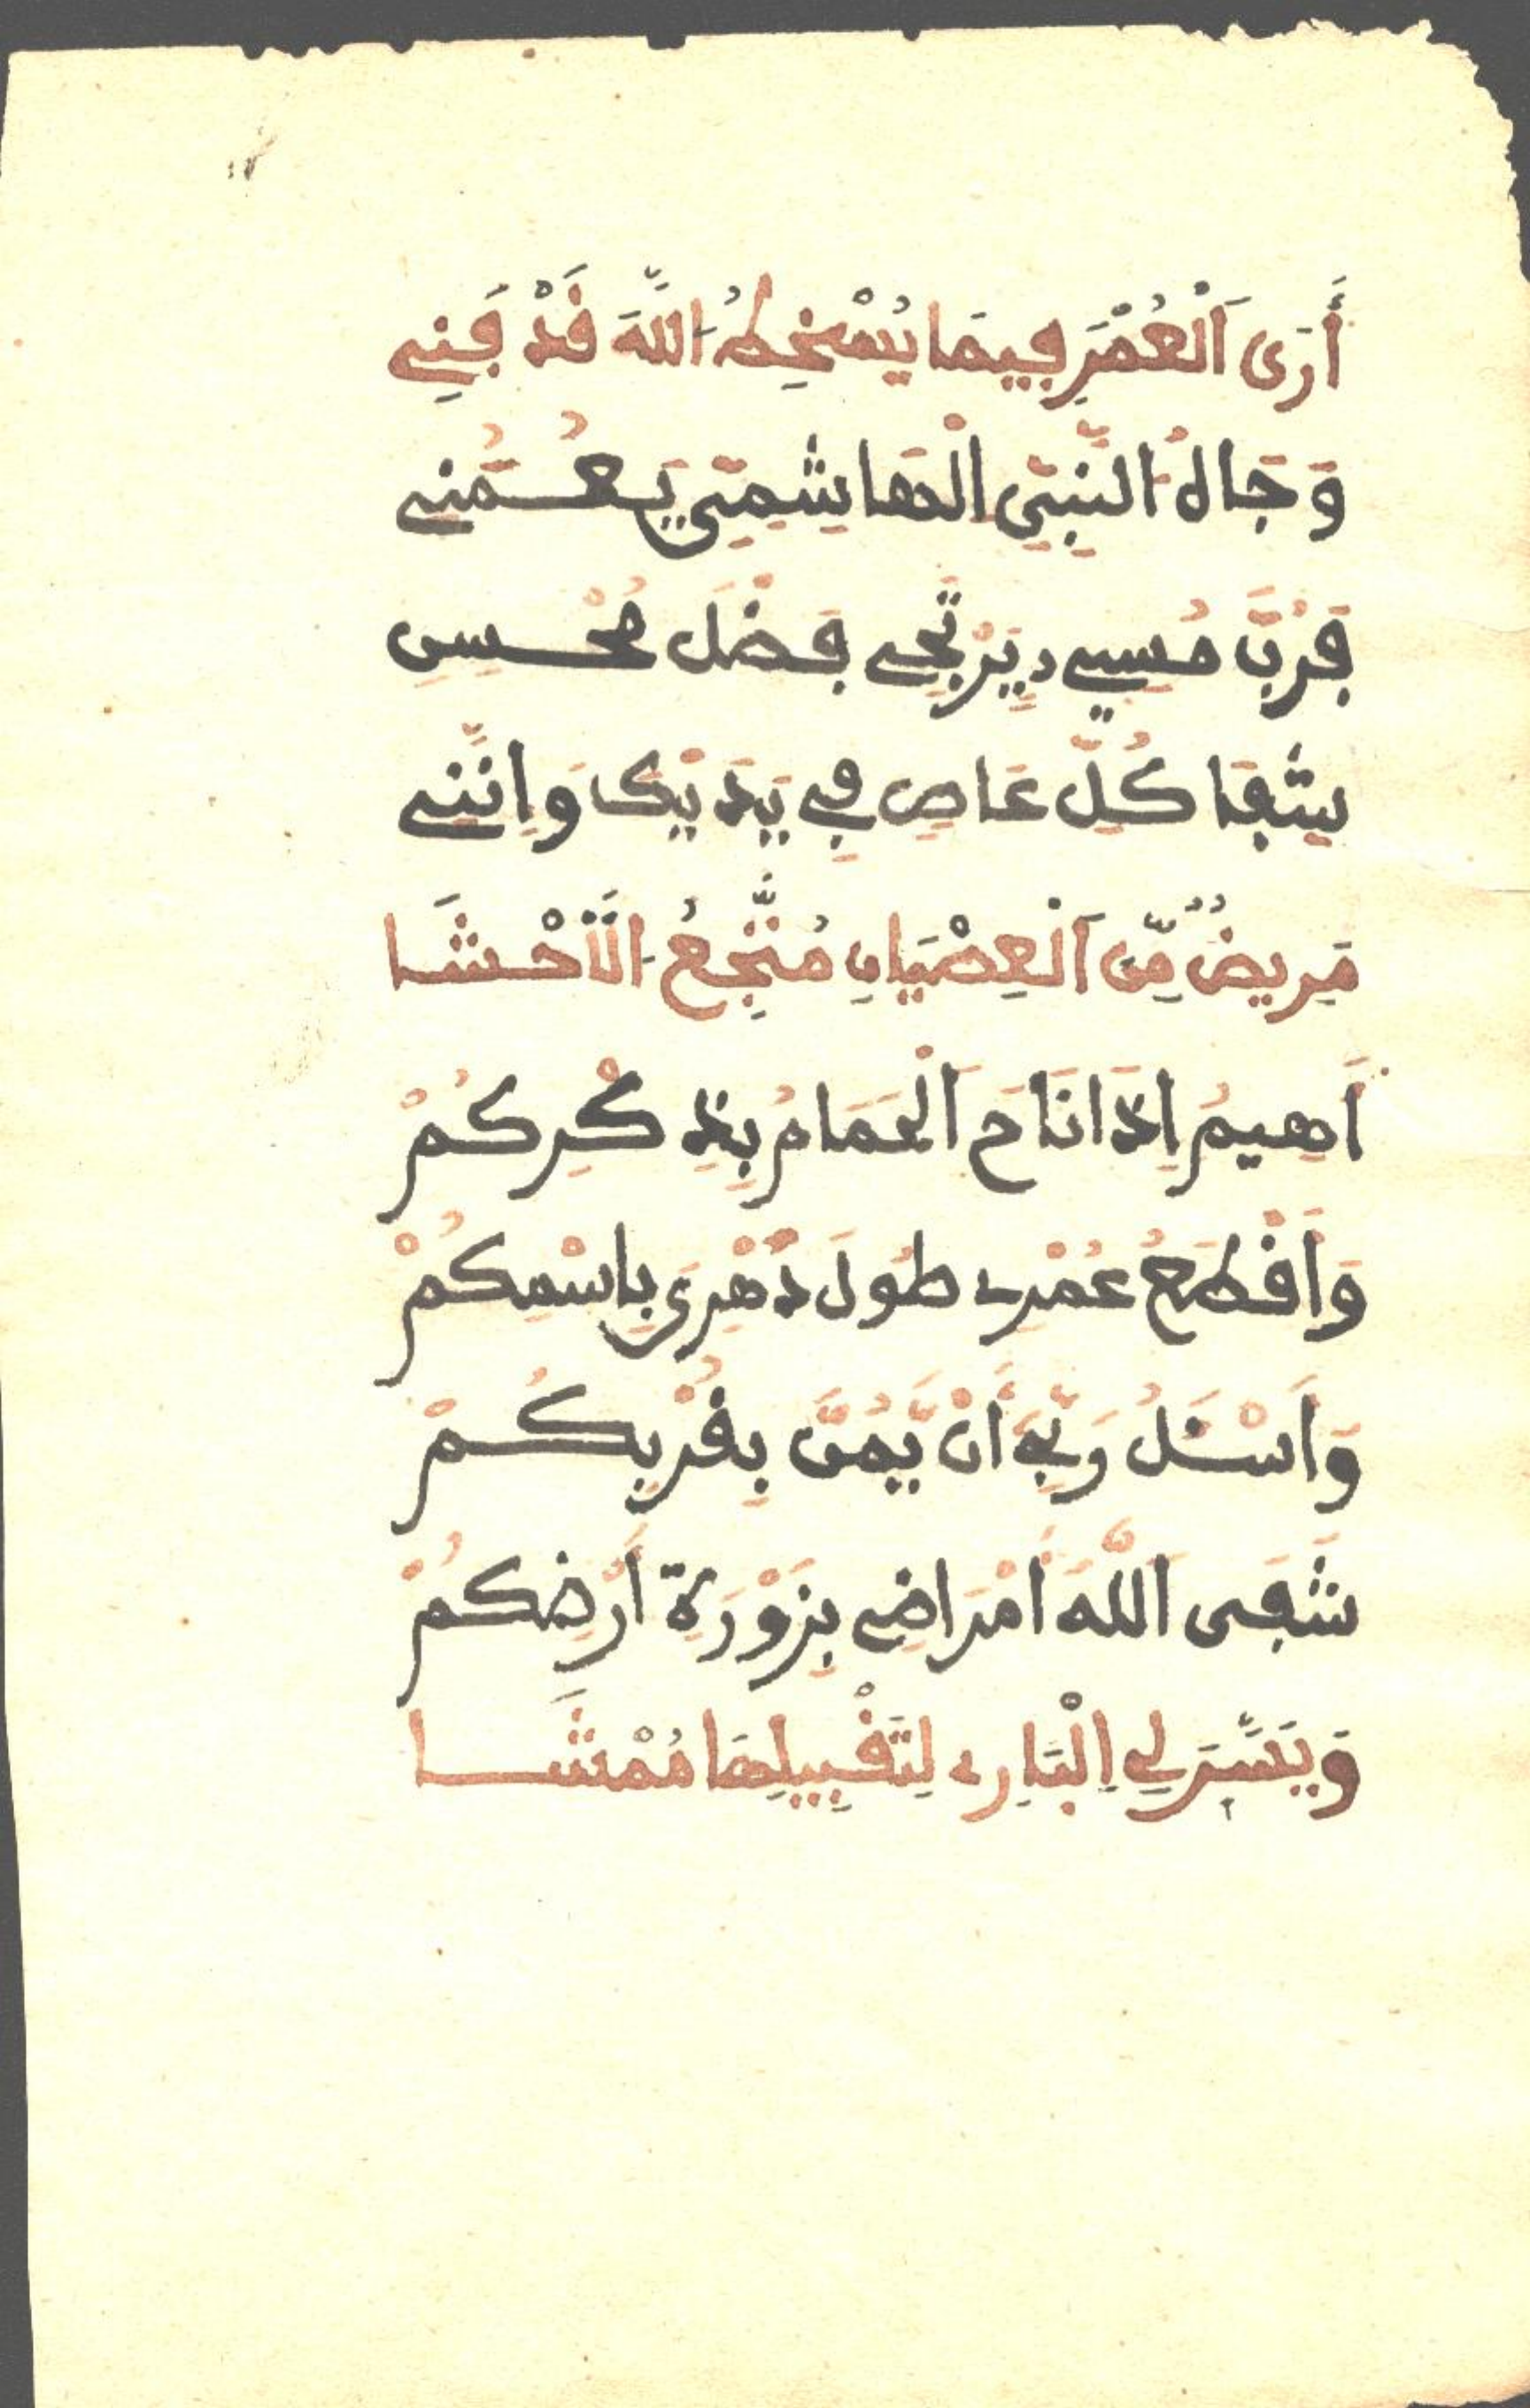 أَرَى اَلْعُمْرَ فِيمَا يُسْخِطُ اَللَّهَ قَدْ فَنِي
وَجَاهُ النَّبِيِّ الْهَاشِمِيِّ يَعُمُّنِي
فَرُبَّ مُسِيءٍ يَرْتَجِي فَضْلَ مُحْسِنِ
شِفَا كُلِّ عَاصٍ فِي يَدَيْكَ وَإِنَّنِي
مَرِيضٌ مِّنَ اَلْعِصْيَانِ مُتَّجِعُ اَلْأَحْشَا
أَهِيمُ إِذَا نَاحَ اَلْحَمَامُ بِذِكْرِكُمْ
وَأَقْطَعُ عُمْرِي طُولَ دَهْرِي بِاسْمِكُمْ
وَأَسْئَلُ رَبِّي أَنْ يَّمُنَّ بِقُرْبِكُمْ
شَفَى اَللَّهُ أَمْرَاضِي بِزَوْرَةِ أَرْضِكُمْ
وَيَسَّرَ لِي اِلْبَارِي لِتَقْبِيلِهَا مُمْشَا